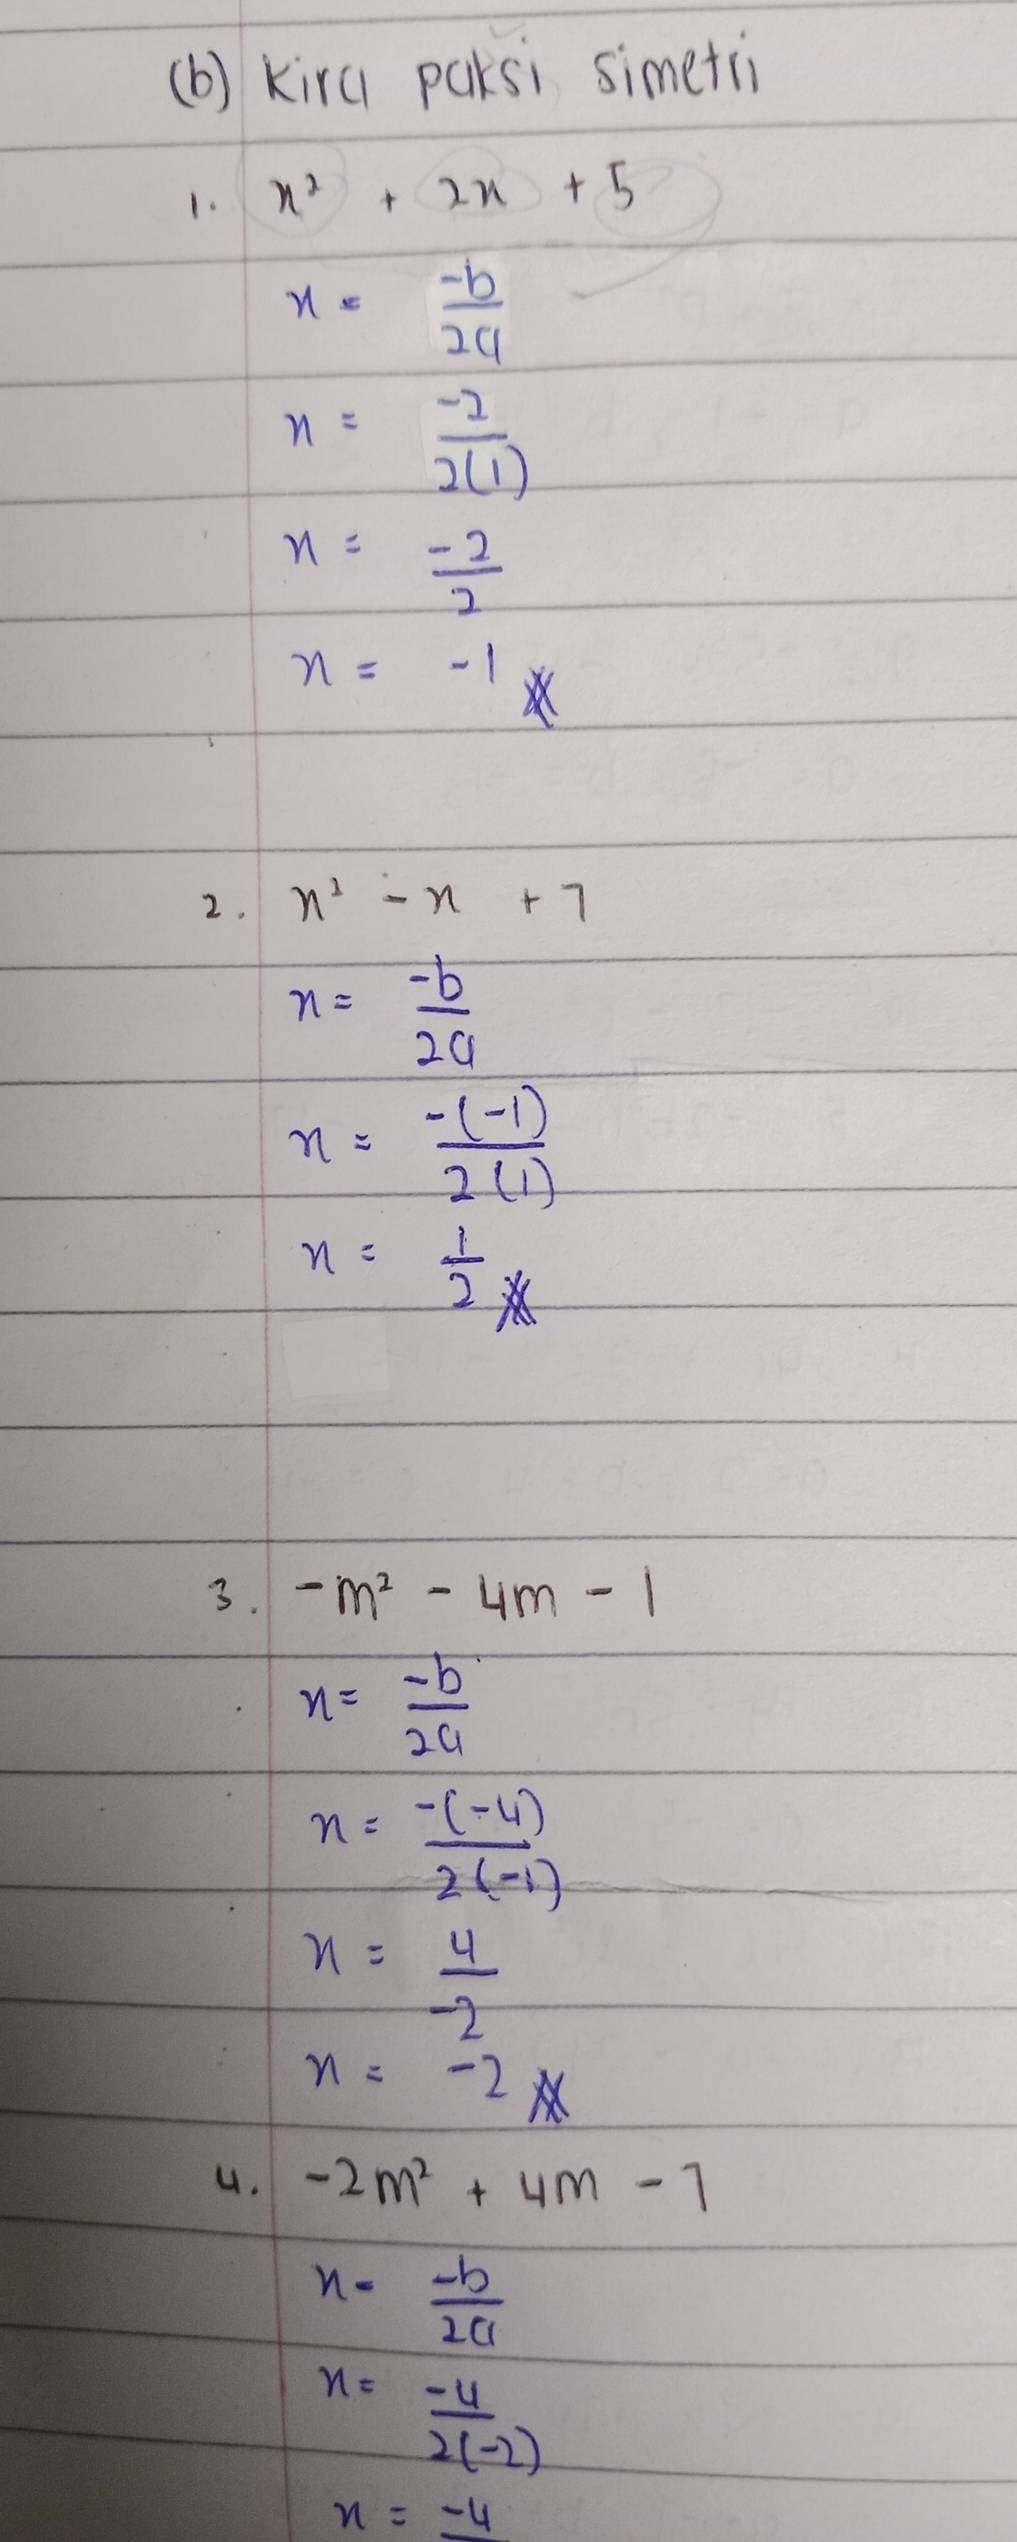 (b) Kira paksi simetri
1. x² + 2x + 5
x = -b/2a
x = -2/2(1)
x = -2/2
x = -1
2. x² - x + 7
x = -b/2a
x = -(-1)/2(1)
x = 1/2
3. -m² - 4m - 1
x = -b/2a
x = -(-4)/2(-1)
x = 4/-2
x = -2
4. -2m² + 4m - 7
x = -b/2a
x = -4/2(-2)
x = -4